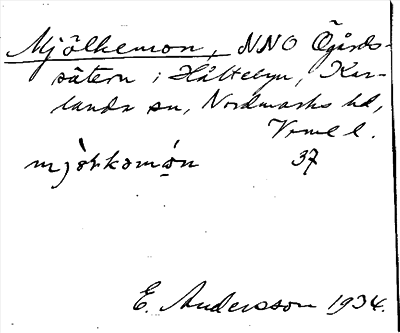 Mjölkemon, NNO Ögårds-
sätern i Håltebyn, Kar-
landa sn, Nordmarks hd,
Vrml l.
mjö̀rkəmón 37
E. Andersson 1934.